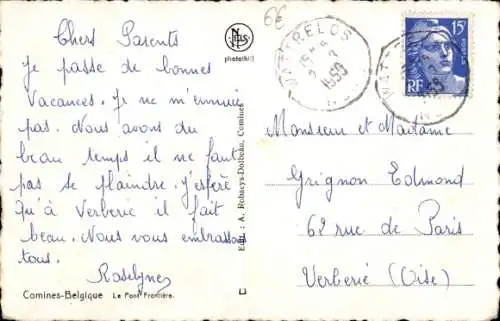 Chers Parents
Je passe de bonnes
Vacances. Je ne m'ennuie
pas. Nous avons du
beau temps il ne faut
pas se plaindre. J'espère
qu'à Verberie il fait
beau. Nous vous embrassons
tous.
Roselyne
Comines-Belgique Le Pont Frontière.
NELS
photothill
Edit.: A. Robaeys-Dolbeau, Comines
6€
WATTRELOS
1955
15F
RF
Monsieur et Madame
Grignon Edmond
62 rue de Paris
Verberie (Oise)